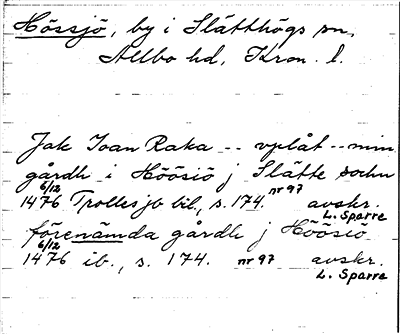 Hössjö, by i Slätthögs sn,
Allbo hd, Kron. l.
Jak Ioan Raka -- vplåt -- min
gårdh i Höösiö j Slätte sochn
6/12 1476 Trollesjb bil., s. 174. nr 97 avskr. L. Sparre
förenämda gårdh j Höösiö
6/12 1476 ib., s. 174. nr 97 avskr. L. Sparre